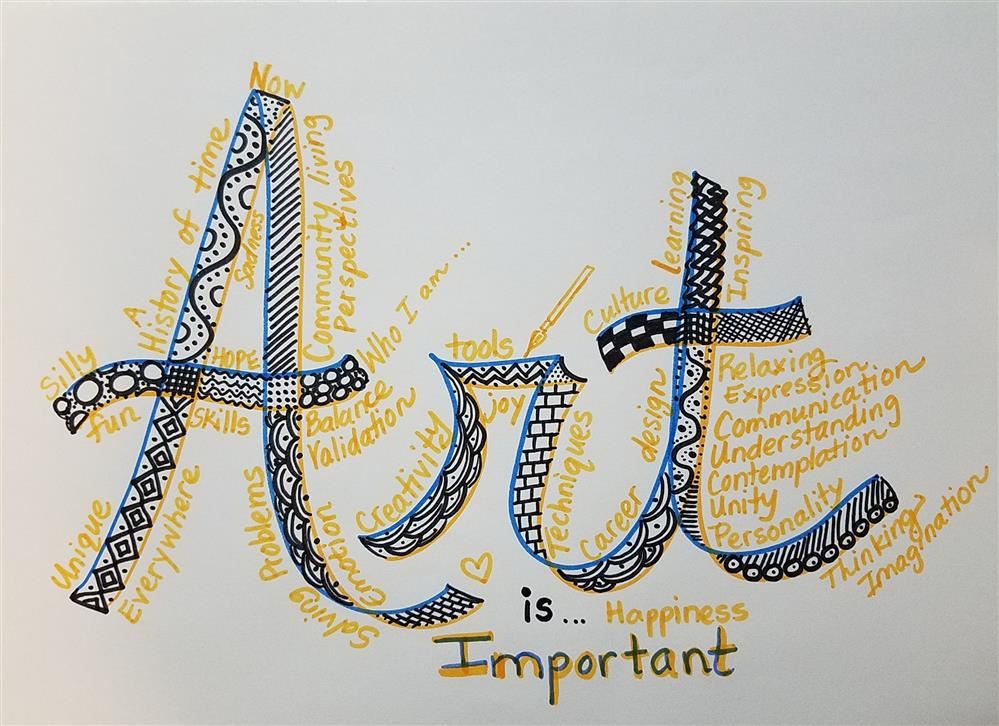 Now
A History of time
Sadness
Community living
Perspectives
Silly
fun
HOPE
Skills
Who I am...
Balance
Validation
Unique
Everywhere
Problems
Solving
Emotion
Art
tools
joy
Creativity
Techniques
Learning
Inspiring
Culture
design
Career
Relaxing
Expression
Communication
Understanding
Contemplation
Unity
Personality
Thinking
Imagination
is...
Happiness
Important